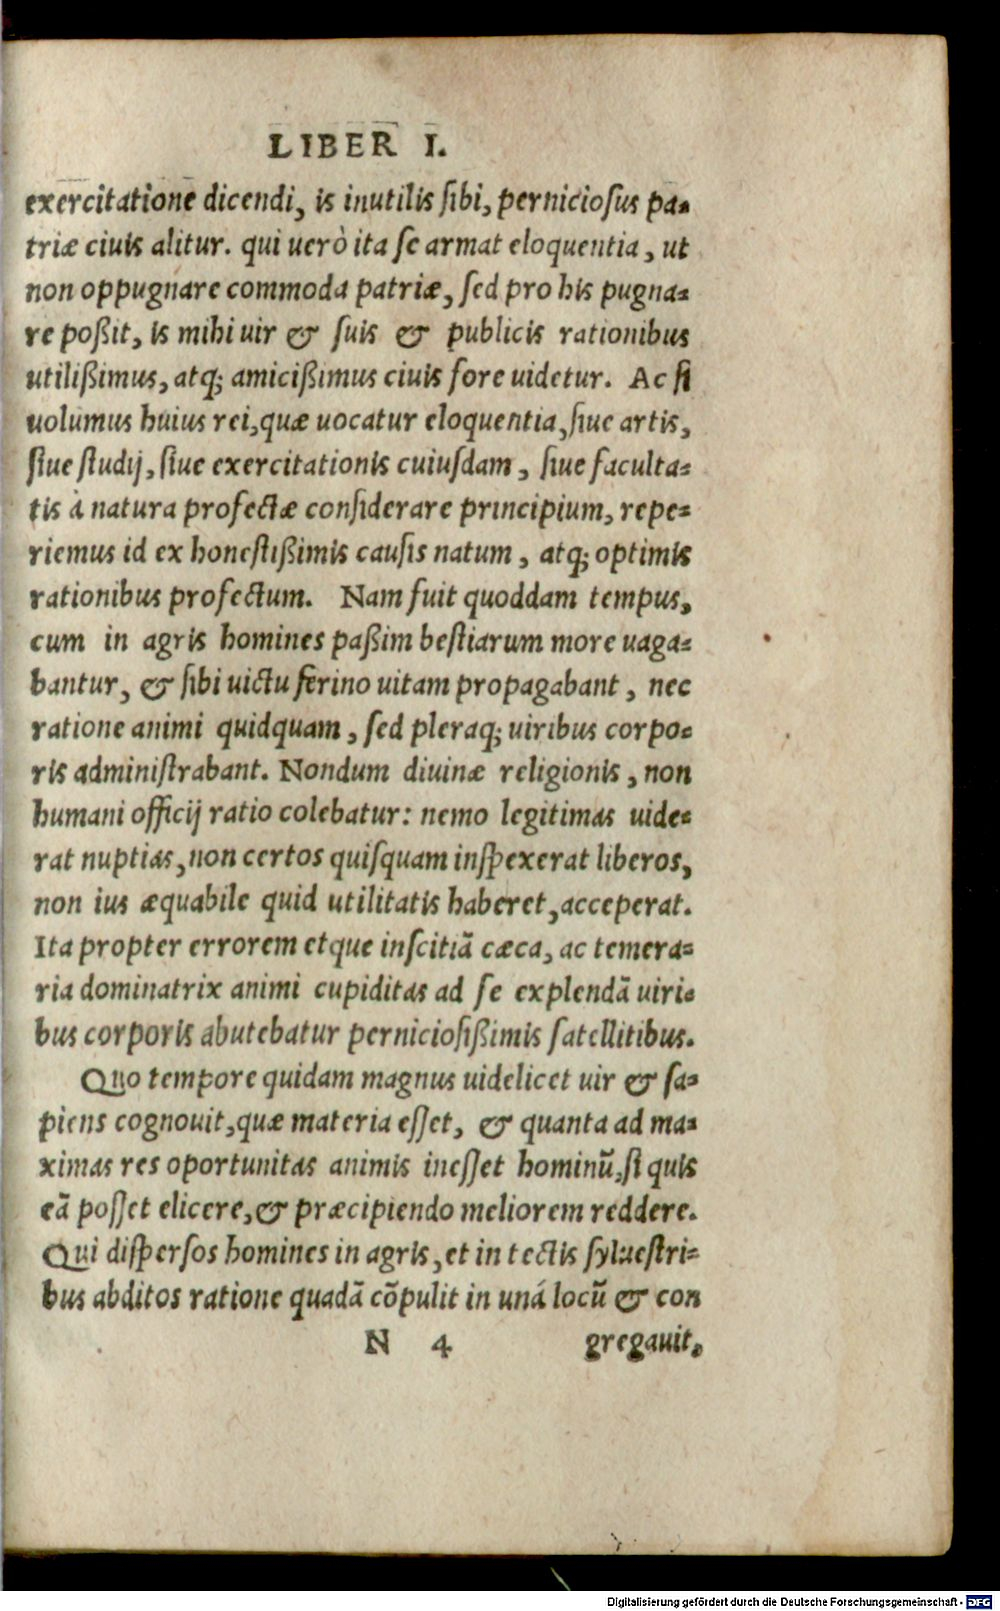 LIBER I.
exercitatione dicendi, is inutilis sibi, perniciosus pa-
triæ ciuis alitur. qui uerò ita se armat eloquentia, ut
non oppugnare commoda patriæ, sed pro his pugna-
re poßit, is mihi uir & suis & publicis rationibus
utilißimus, atq; amicißimus ciuis fore uidetur. Ac si
uolumus huius rei, quæ uocatur eloquentia, siue artis,
siue studij, siue exercitationis cuiusdam, siue faculta-
tis à natura profectæ considerare principium, repe-
riemus id ex honestißimis causis natum, atq; optimis
rationibus profectum. Nam fuit quoddam tempus,
cum in agris homines paßim bestiarum more uaga-
bantur, & sibi uictu ferino uitam propagabant, nec
ratione animi quidquam, sed pleraq; uiribus corpo-
ris administrabant. Nondum diuinæ religionis, non
humani officij ratio colebatur: nemo legitimas uide-
rat nuptias, non certos quisquam inspexerat liberos,
non ius æquabile quid utilitatis haberet, acceperat.
Ita propter errorem etque inscitiā cæca, ac temera-
ria dominatrix animi cupiditas ad se explendā uiri-
bus corporis abutebatur perniciosißimis satellitibus.
Quo tempore quidam magnus uidelicet uir & sa-
piens cognouit, quæ materia esset, & quanta ad ma-
ximas res oportunitas animis inesset hominū, si quis
eā posset elicere, & præcipiendo meliorem reddere.
Qui dispersos homines in agris, et in tectis syluestri-
bus abditos ratione quadā cōpulit in unā locū & con
N 4 gregauit,
Digitalisierung gefördert durch die Deutsche Forschungsgemeinschaft - DFG